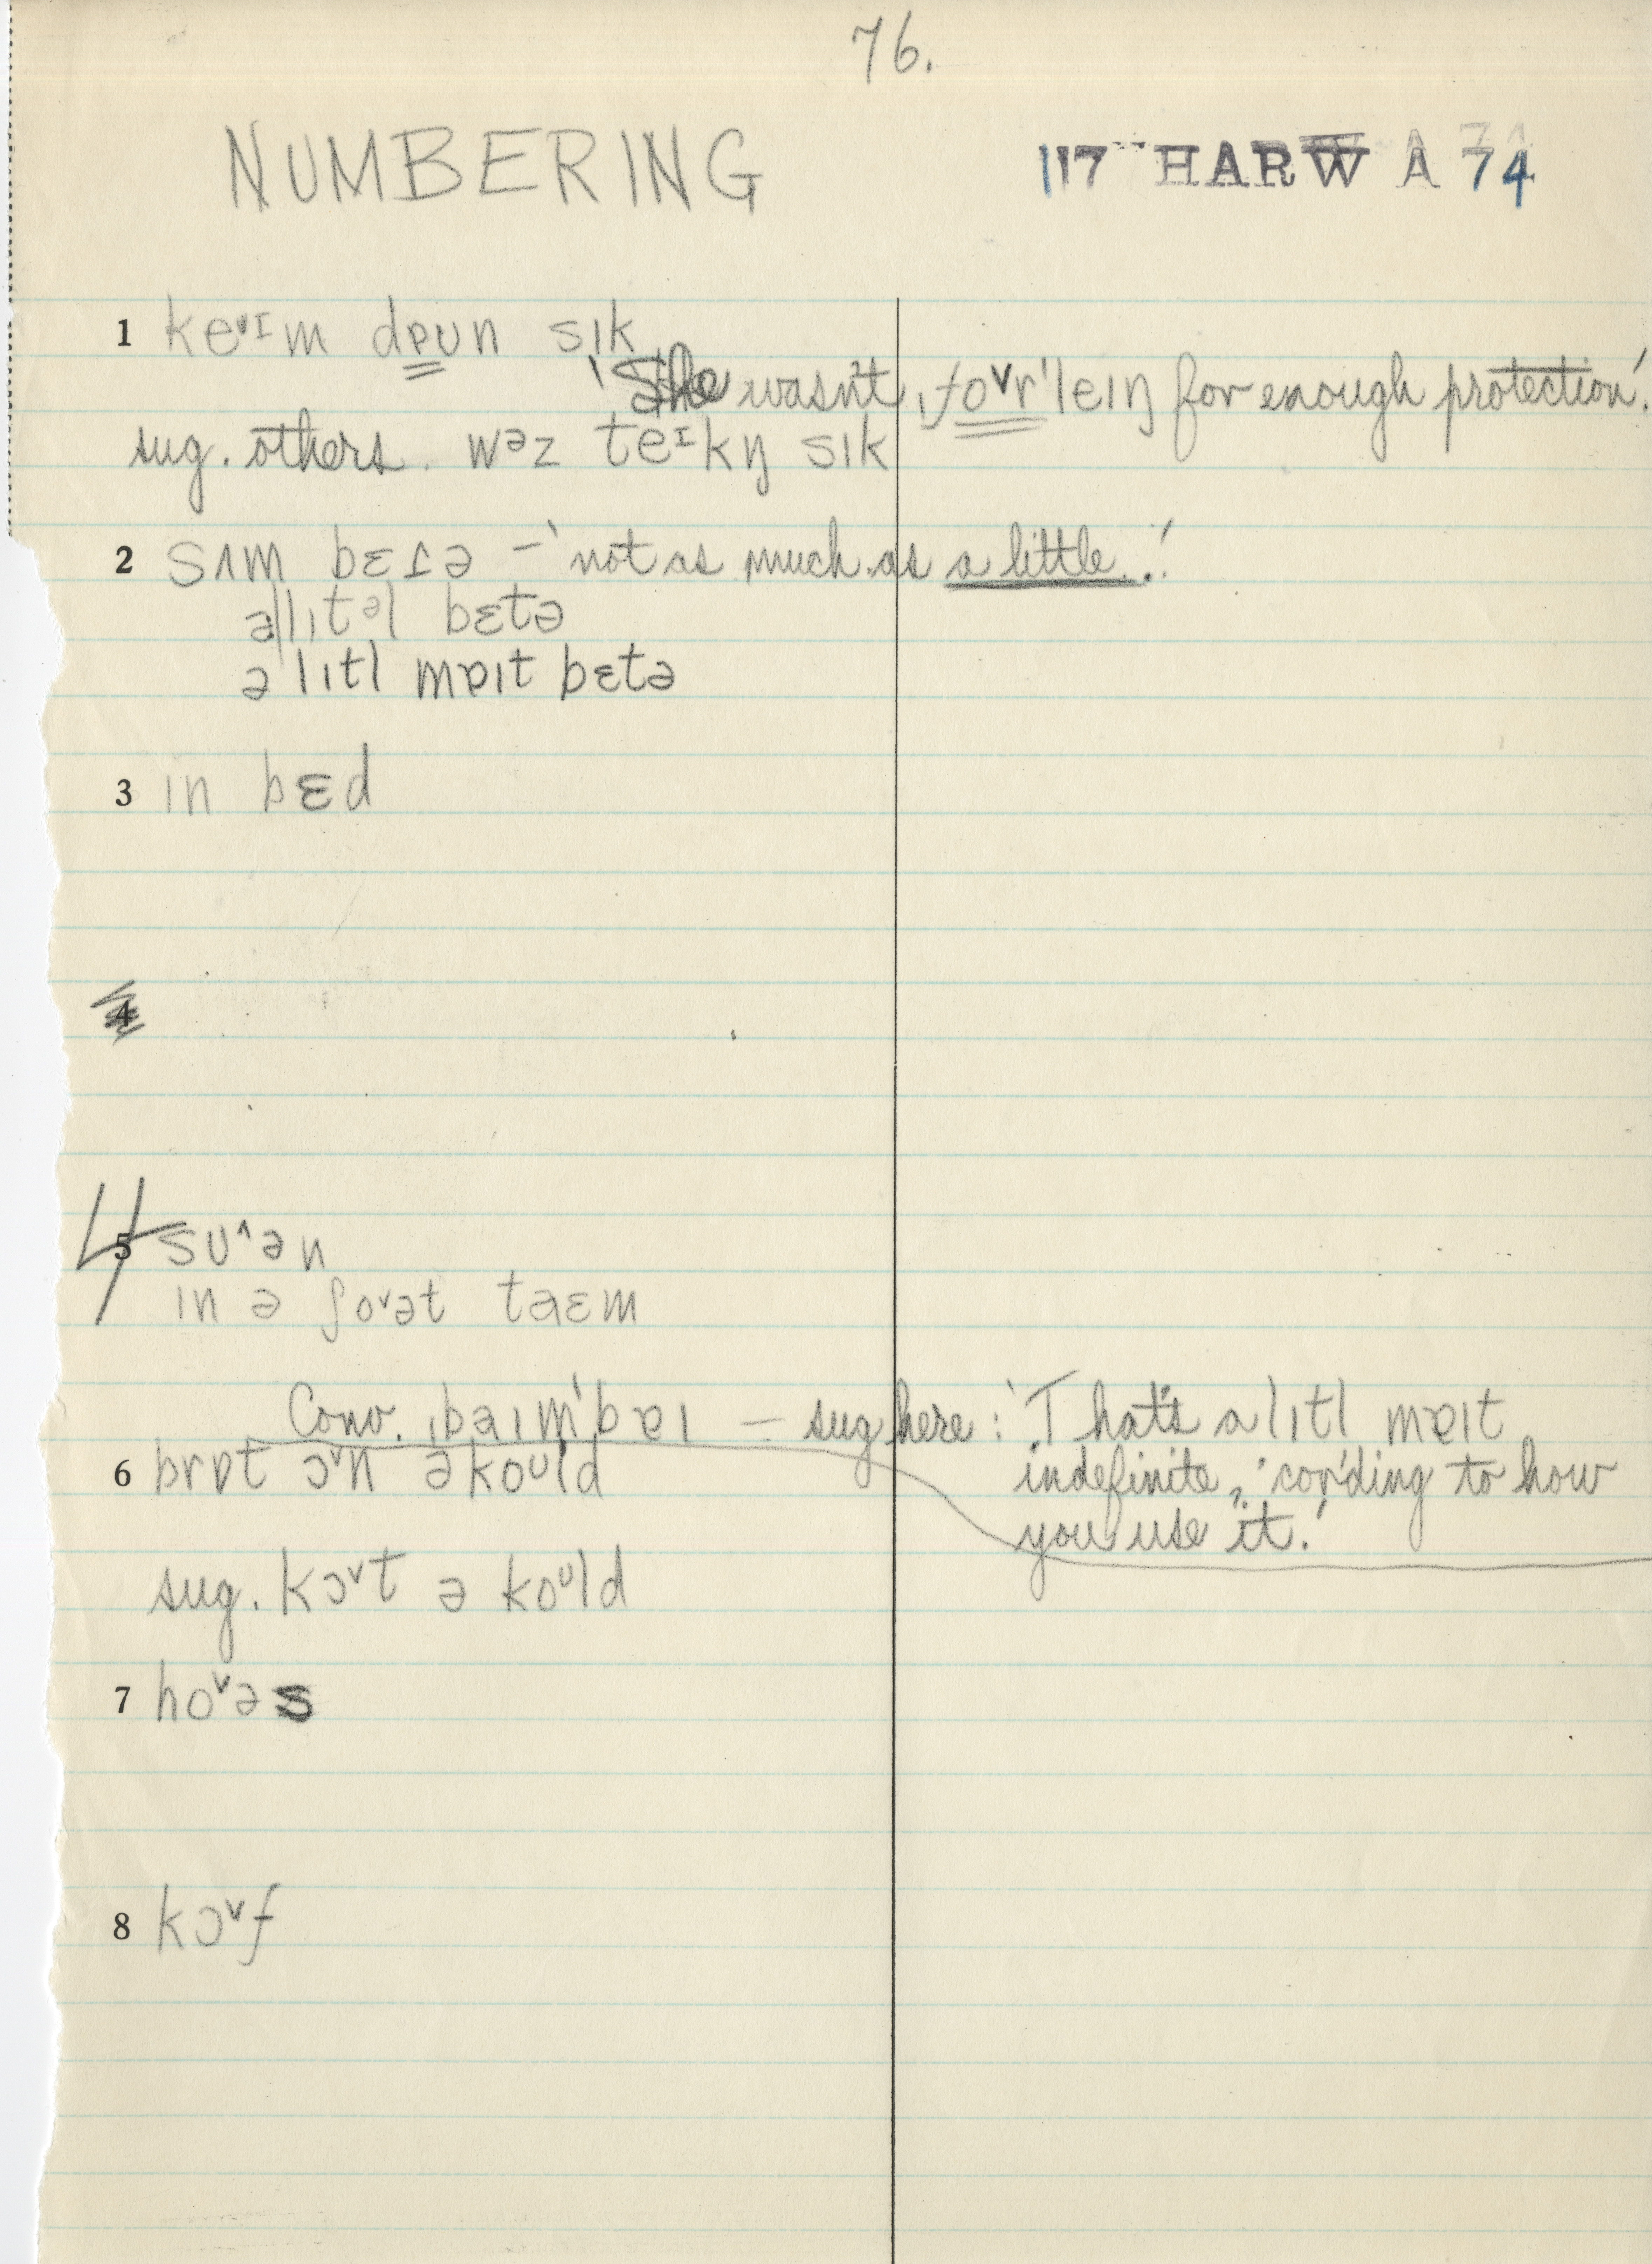 76.
NUMBERING
117 HARW A 74
1 keᵛɪm dɐun sık
'She wasn't ˌfoᵛrˈleıŋ for enough protection.'
sug. others. wəz teɪkŋ sık
2 sʌm bɛɾə – 'not as much as a little.'
ə lıtᵊl bɛtə
ə lıtl mɐıt bɛtə
3 ın bɛd
4
4 5 suˆən
ın ə ʃoᵛət taɛm
Conv. ˌbaımˈbɐı – sug here: 'That's a lıtl mɐıt
indefinite, 'cording to how
you use it.'
6 brɒt ɔᵛn ə koᶸld
sug. kɔᵛt ə koᶸld
7 hoᵛəs
8 kɔᵛf